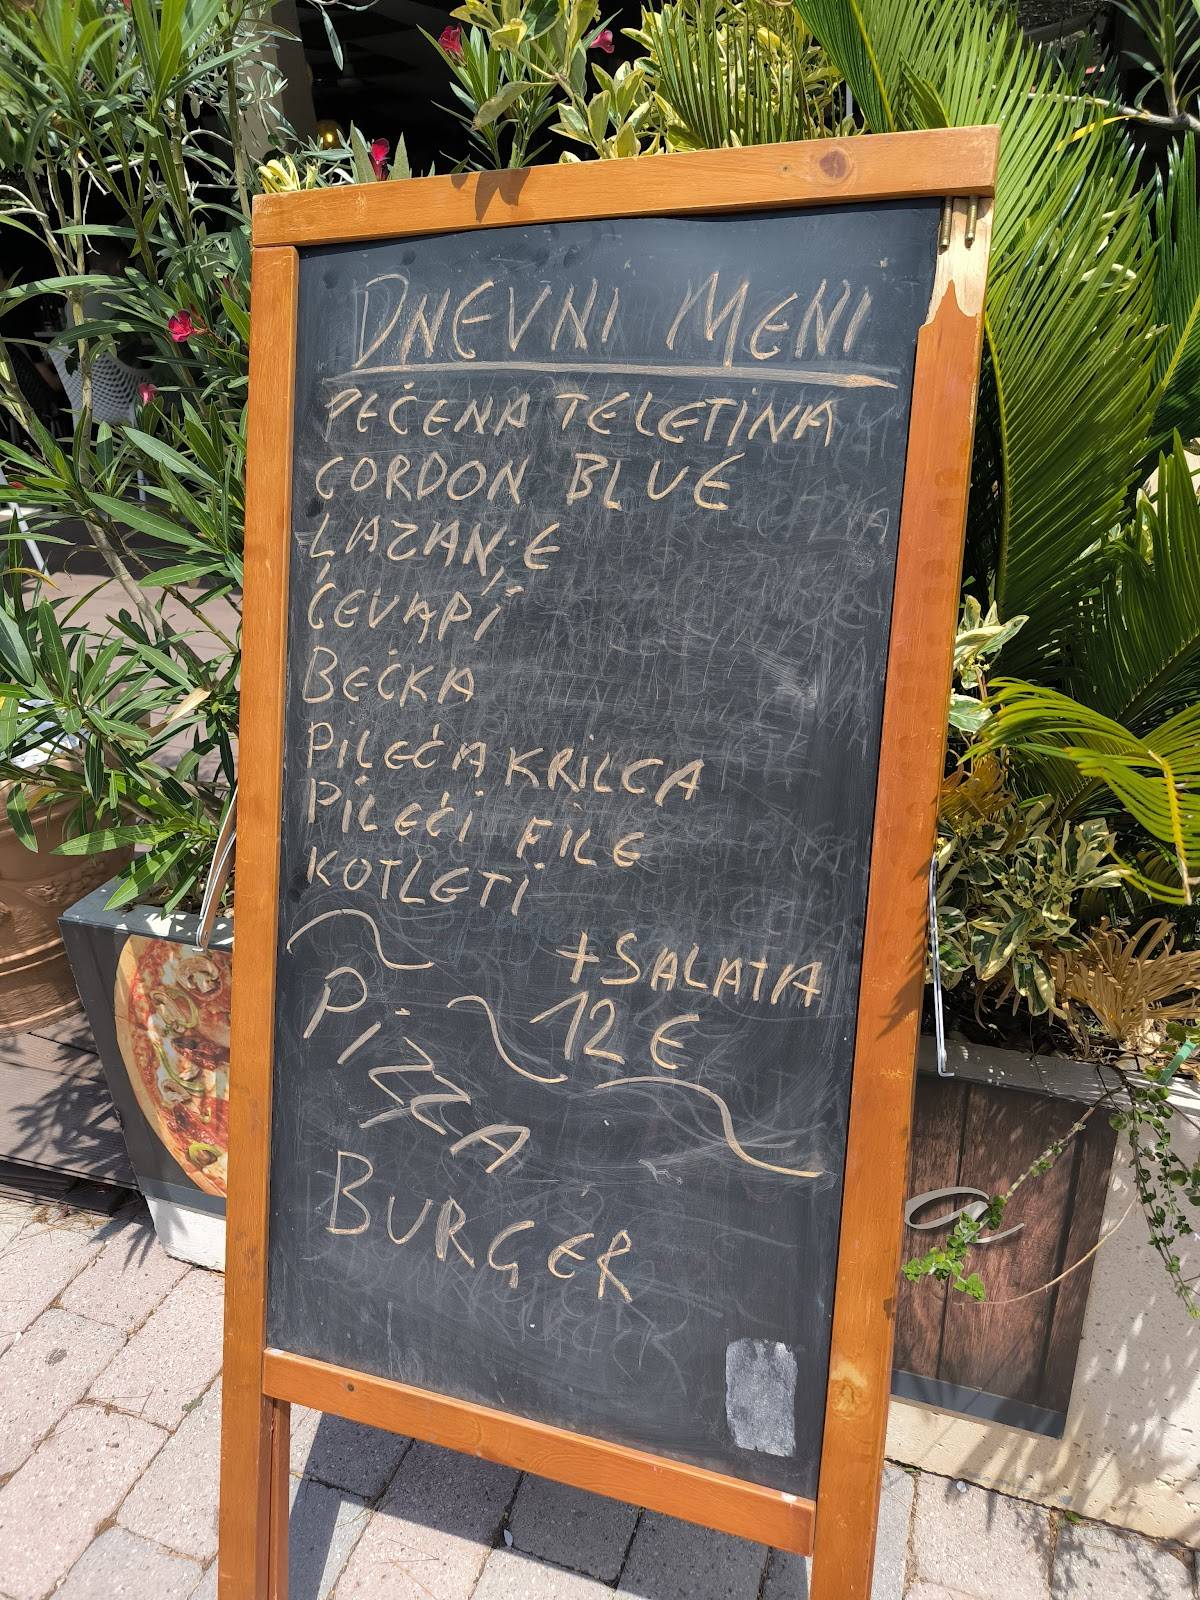 DNEVNI MENI
PEČENA TELETINA
GORDON BLUE
LAZANJE
ČEVAPI
BEČKA
PILEĆA KRILCA
PILEĆI FILE
KOTLETI
+SALATA
12 €
PIZZA
BURGER